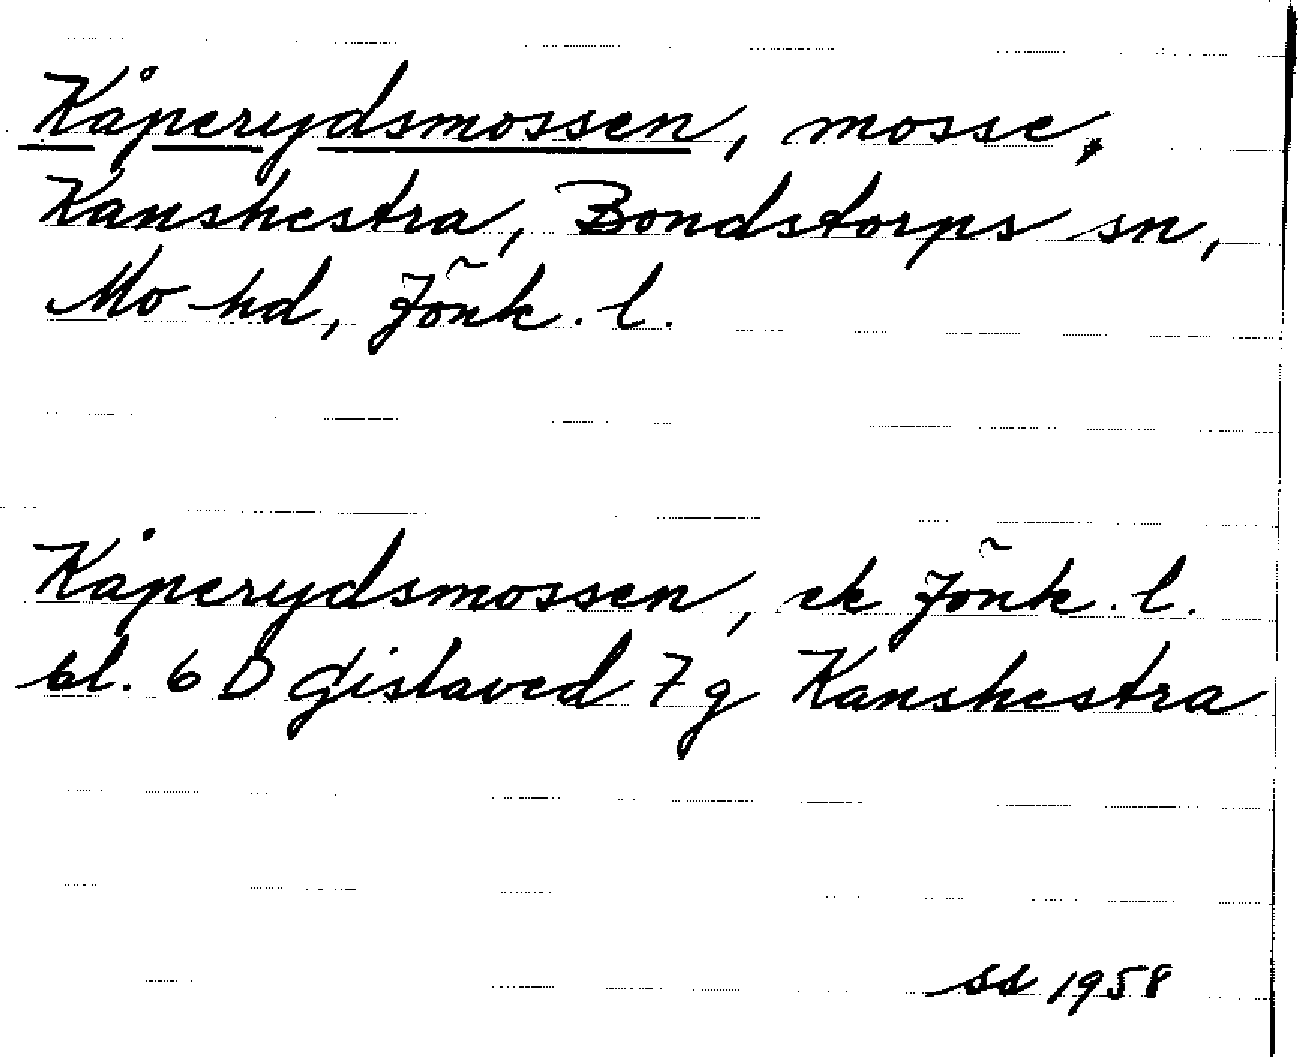 Kåperydsmossen, mosse,
Kanshestra, Bondstorps sn,
Mo hd, Jönk. l.
Kåperydsmossen, ek Jönk. l.
bl. 6 D Gislaved 7 g Kanshestra
SS 1958